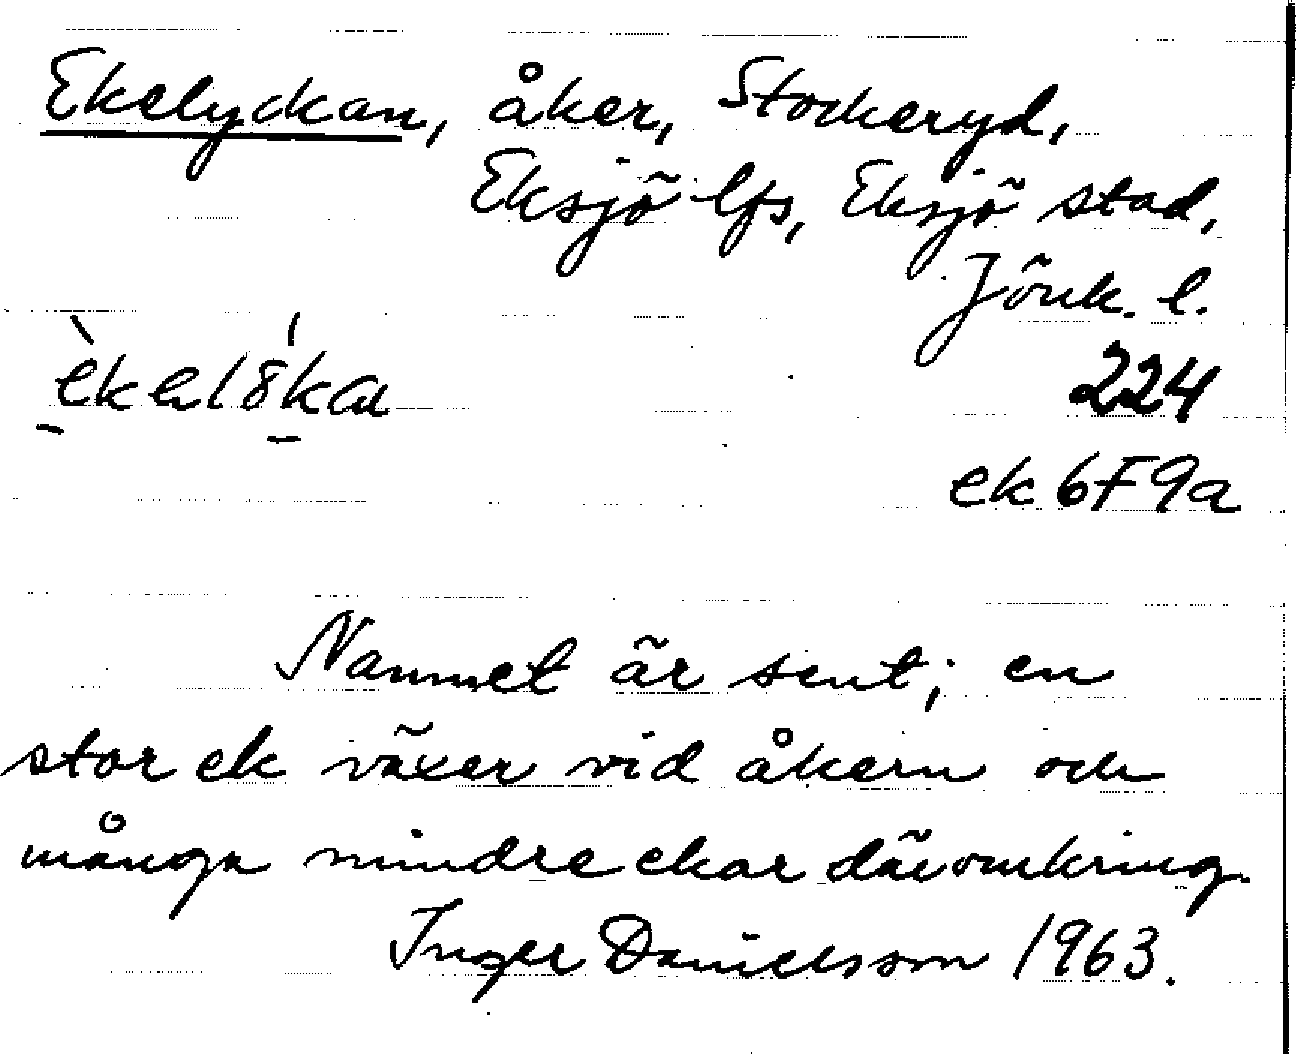 Ekelyckan, åker, Stockeryd,
Eksjö lfs, Eksjö stad,
Jönk. l.
224
ek 6F9a
Namnet är sent; en
stor ek växer vid åkern och
många mindre ekar däromkring.
Inger Danielsson 1963.